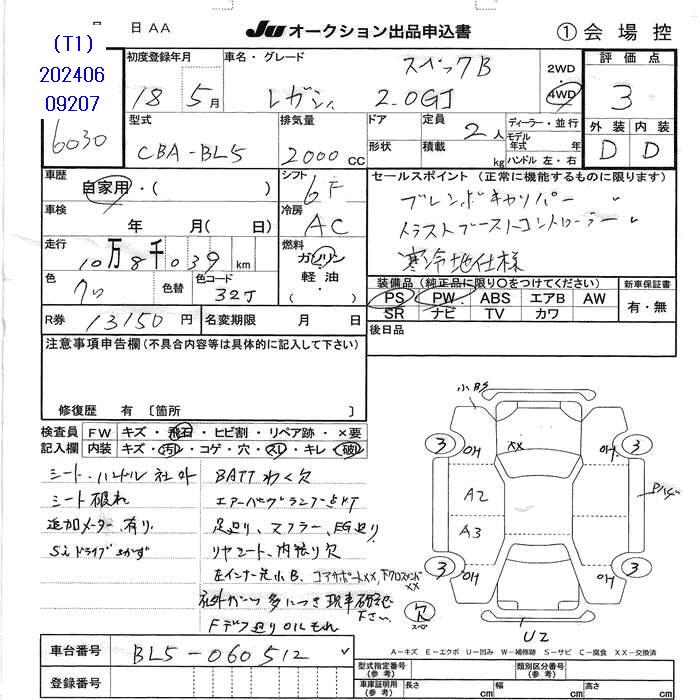 日 AA
JU オークション出品申込書
① 会場控
(T1)
202406
09207
6030
初度登録年月
18年 5月
車名・グレード
レガシィ 2.0GT スペックB
2WD
4WD
評価点
3
外装 内装
D D
型式
CBA-BL5
排気量
2000cc
ドア
形状
定員
積載
2人
kg
ディーラー・並行
モデル
年式 年
ハンドル 左・右
車歴
自家用・( )
シフト
6F
セールスポイント(正常に機能するものに限ります)
ブレンボキャリパー
寒冷地仕様
車検
年 月( 日)
冷房
AC
走行
10万8千039km
燃料
ガソリン
軽油
・( )
色
クロ
色替
色コード
32J
装備品(純正品に限り○をつけてください)
PS PW ABS エアB AW
SR ナビ TV カワ
新車保証書
有・無
R券 13150円
名変期限 月 日
後日品
注意事項申告欄(不具合内容等は具体的に記入して下さい)
修復歴 有 〔箇所 〕
検査員
記入欄
FW キズ・飛石・ヒビ割・リペア跡・×要
内装 キズ・汚れ・コゲ・穴・スレ・キレ・破れ
シート、ハンドル社外
シート破れ
追加メーター有り
Siドライブきかず
BATTわく欠
エアーバッグランプ点灯
足廻り、マフラー、EG廻り
リヤシート、内張り欠
左インナー先小B、コアサポートXX、下クロスメンバXX
社外パーツ多につき現車確認下さい
Fデフ廻りOILもれ
小形
3 3
OH OH
XX
A2
A3
3 3
OH OH
欠
スペア
U2
A-キズ E-エクボ U-凹み W-補修跡 S-サビ C-腐食 XX-交換済
車台番号 BL5-060512
登録番号
型式指定番号
(参考)
類別区分番号
(参考)
車庫証明用
(参考)
長さ cm 幅 cm 高さ cm